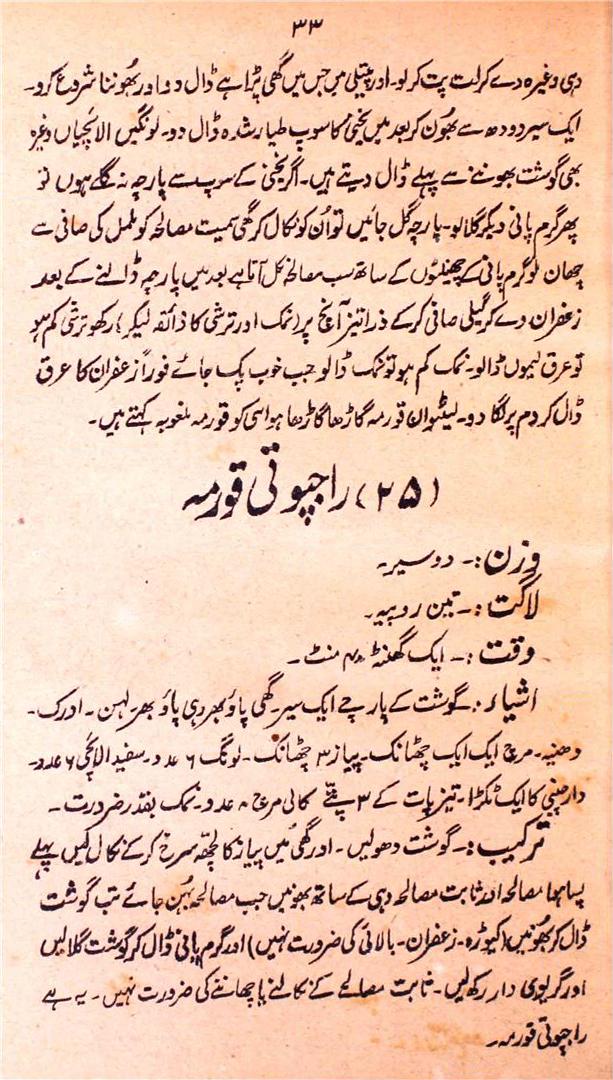 ۳۳
دہی وغیرہ دے کر لت پت کر لو۔ اور پتیلی میں جس میں گھی پڑا ہے ڈال دو اور بھوننا شروع کرو۔
ایک سیر دودھ سے بھون کر بعد میں یخنی کا سوپ طیار شدہ ڈال دو۔ لونگیں الائچیاں وغیرہ
بھی گوشت بھوننے سے پہلے ڈال دیتے ہیں۔ اگر یخنی کے سوپ سے پارچہ نہ گلے ہوں تو
پھر گرم پانی دیکر گلا لو۔ پارچہ گل جائیں تو اُن کو نکال کر گھی سمیت مصالحہ کو ململ کی صافی سے
چھان لو گرم پانی کے چھینٹوں کے ساتھ سب مصالحہ نکل آتا ہے بعد میں پارچہ ڈالنے کے بعد
زعفران دے کر گیلی صافی کر کے ذرا تیز آنچ پر (نمک اور ترشی کا ذائقہ لیکر) رکھو ترشی کم ہو
تو عرق لیموں ڈالو۔ نمک کم ہو تو نمک ڈالو جب خوب پک جائے فوراً زعفران کا عرق
ڈال کر دم پر لگا دو۔ لیٹواں قورمہ گاڑھا گاڑھا ہو اسی کو قورمہ ملغوبہ کہتے ہیں۔
(۲۵) راجپوتی قورمہ
وزن :۔ دو سیر۔
لاگت :۔ تین روپیہ۔
وقت :۔ ایک گھنٹہ ۴۰ منٹ۔
اشیاء :۔ گوشت کے پارچے ایک سیر۔ گھی پاؤ بھر دہی پاؤ بھر۔ لہسن۔ ادرک۔
دھنیہ۔ مرچ ایک ایک چھٹانک۔ پیاز ۳ چھٹانک۔ لونگ ۶ عدد۔ سفید الائچی ۶ عدد۔
دارچینی کا ایک ٹکڑا۔ تیزپات کے ۳ پتے کالی مرچ ۸ عدد۔ نمک بقدر ضرورت۔
ترکیب :۔ گوشت دھولیں۔ اور گھی میں پیاز کا لچھہ سرخ کر کے نکال لیں پہلے
پسا ہوا مصالحہ اور ثابت مصالحہ دہی کے ساتھ بھونیں جب مصالحہ بُھن جائے تب گوشت
ڈال کر بھونیں (کیوڑہ۔ زعفران۔ بالائی کی ضرورت نہیں) اور گرم پانی ڈال کر گوشت گلا لیں
اور گریوی دار رکھ لیں۔ ثابت مصالحے کے نکالنے یا چھاننے کی ضرورت نہیں۔ یہ ہے
راجپوتی قورمہ۔